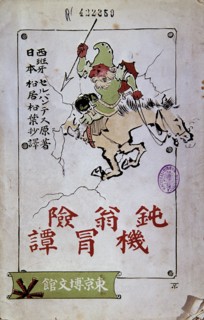 西班牙 セルバンテス原著
日本 松居松葉抄譯
鈍機
翁冒
險譚
東京博文館